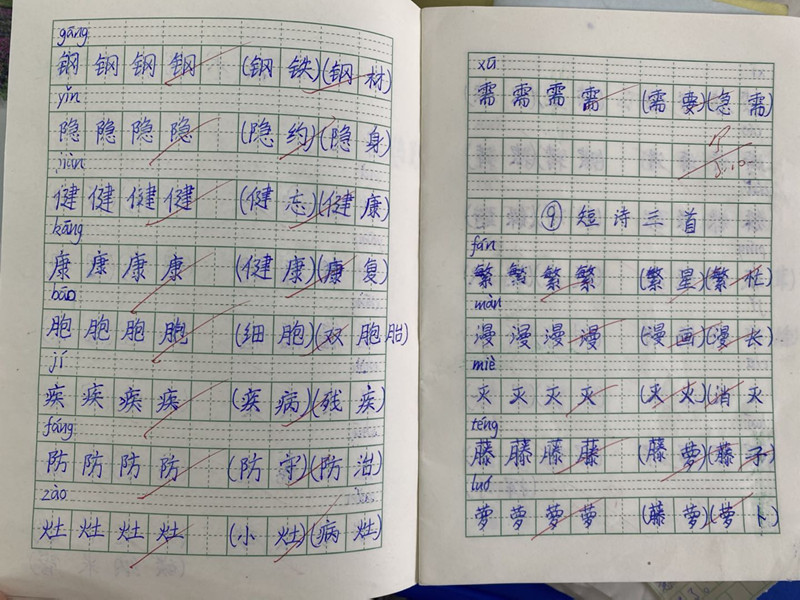 gāng
钢 钢 钢 钢 (钢铁)(钢材)
yǐn
隐 隐 隐 隐 (隐约)(隐身)
jiàn
健 健 健 健 (健忘)(健康)
kāng
康 康 康 康 (健康)(康复)
bāo
胞 胞 胞 胞 (细胞)(双胞胎)
jí
疾 疾 疾 疾 (疾病)(残疾)
fáng
防 防 防 防 (防守)(防治)
zào
灶 灶 灶 灶 (小灶)(病灶)
xū
需 需 需 需 (需要)(急需)
⑨ 短诗三首
fán
繁 繁 繁 繁 (繁星)(繁忙)
màn
漫 漫 漫 漫 (漫画)(漫长)
miè
灭 灭 灭 灭 (灭火)(消灭)
téng
藤 藤 藤 藤 (藤萝)(藤子)
luó
萝 萝 萝 萝 (藤萝)(萝卜)